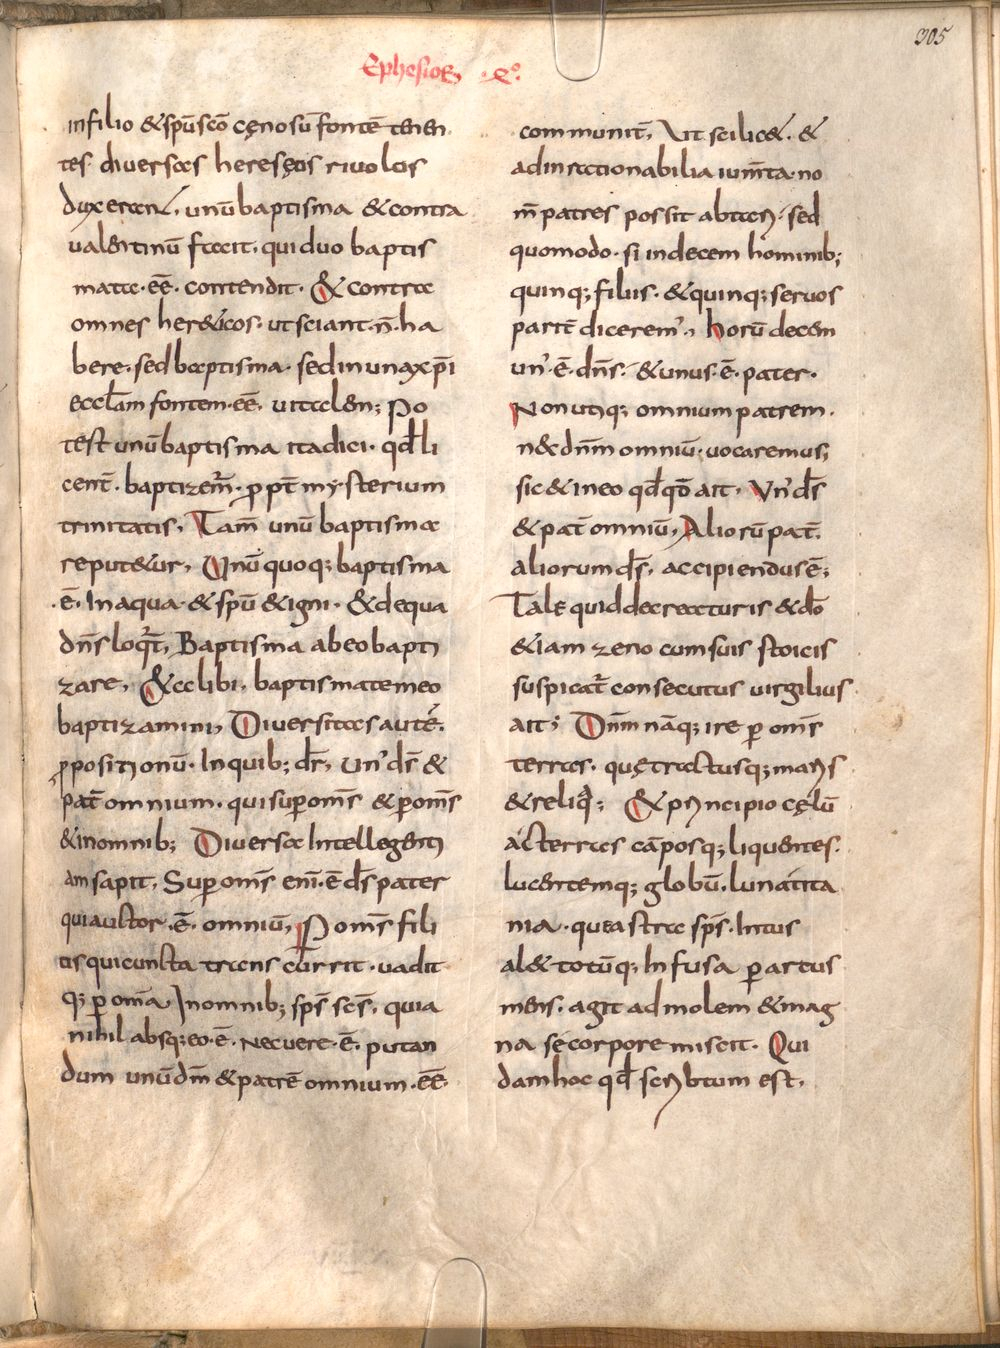 305
Ephesios
in filio & spū scō cęnosū fontē tenen
tes diversas heresęos rivolos
duxerant, unū baptisma & contra
ualentinū facit, qui duo baptis
mata · eē · contendit · & contra
omnes her&icos · ut sciant · n̄ · ha
bere · sed baptisma · sed in una xp̄i
eccl̄am fontem · eē · uitalen; Po
test unū baptisma ita dici · qd̄ li
cent̄ · baptizem̄ · ꝓpt̄ mysterium
trinitatis, Tam̄ unū baptisma
reput&ur, Unū quoq; baptisma
· ē · In aqua · & spū & igni · & de qua
dn̄s loqt̄, Baptisma abeo bapti
zare, & alibi, baptismate meo
baptizamini, Diversitas autē ·
ꝓpositionū · In quib; dr̄, Un' ds̄ &
pat̄ omnium · qui suꝑ om̄s & ꝑ om̄s
& in omnib; Diversa Intellegenti
am sapit, Suꝑ om̄s eni · ē ds̄ pater
qui auctor · ē · omniū, P om̄s fili
us qui cuncta trans currit · uadit
q; ꝑ om̄a In omnib; sps̄ scs̄, quia
nihil absq; eo · ē · Nec uere · ē · putan
dum unū dm̄ & patrē omnium · eē ·
communit̄, Ut scilic& · &
ad inrationabilia ium̄ta · no
m̄ patres possit abtari · sed
quomodo · si in decem hominib;
quinq; filiis · & quinq; seruos
partē dicerem', horū decem
un' · ē · dn̄s · & unus · ē · pater ·
Non utiq; omnium patrem ·
n& dn̄m omniū · uocaremus;
sic & in eo qd̄ qō ait · Un' ds̄
& pat̄ omniū, Aliorū pat̄ ·
aliorum ds̄, accipiendus ē;
Tale quid de creaturis & dō
&iam zeno cum suis stoicis
suspicat̄ consecutus uirgilius
ait; Dn̄m nāq; ire ꝑ om̄s
terras · quę tractusq; maris
& reliq; & principio cęlū
ac terras cāposq; liquentes ·
lucentemq; globū, lunae tita
nia · quæ astra sps̄ · Intus
al& totūq; In fusa ꝑ artus
mens · agit ad molem & mag
na se corpore miscit · Qui
dam hoc qd̄ scribtum est,